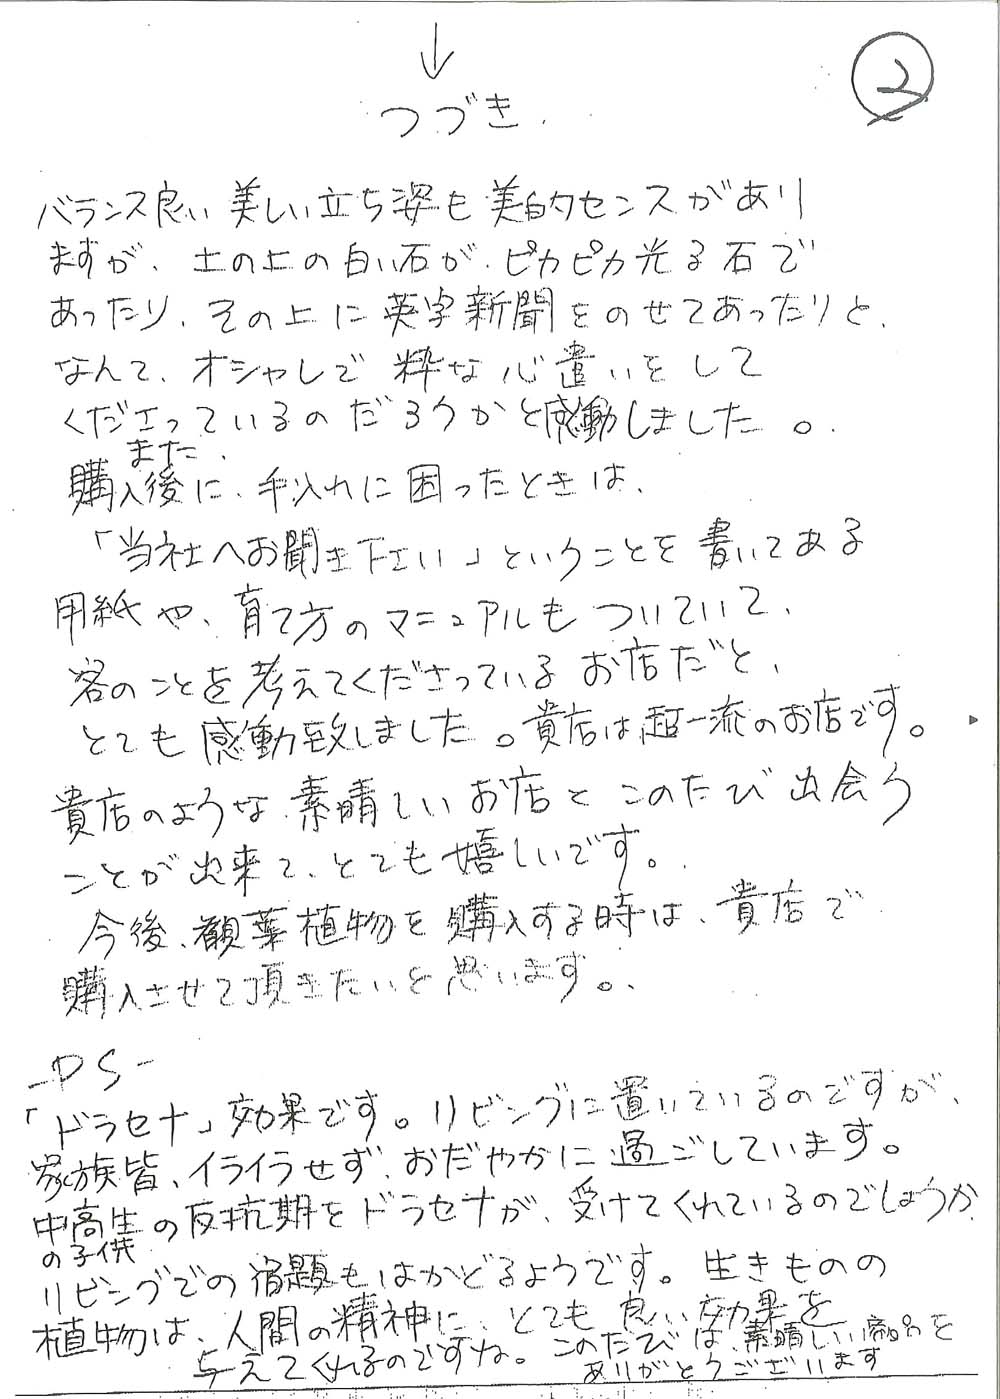 ↓
②
つづき.
バランス良い美しい立ち姿も美的センスがあり
ますが、土の上の白い石が、ピカピカ光る石で
あったり、その上に英字新聞をのせてあったりと、
なんて、オシャレで粋な心遣いをして
くださっているのだろうかと感動しました。
また、
購入後に、手入れに困ったときは、
「当社へお聞き下さい」ということを書いてある
用紙や、育て方のマニュアルもついていて、
客のことを考えてくださっているお店だと、
とても感動致しました。貴店は超一流のお店です。
貴店のような素晴しいお店とこのたび出会う
ことが出来て、とても嬉しいです。
今後、観葉植物を購入する時は、貴店で
購入させて頂きたいと思います。
-PS-
「ドラセナ」効果です。リビングに置いているのですが、
家族皆、イライラせず、おだやかに過ごしています。
中高生の反抗期をドラセナが、受けてくれているのでしょうか
の子供
リビングでの宿題もはかどるようです。生きものの
植物は、人間の精神に、とても良い効果を
与えてくれるのですね。このたびは、素晴しい商品を
ありがとうございます